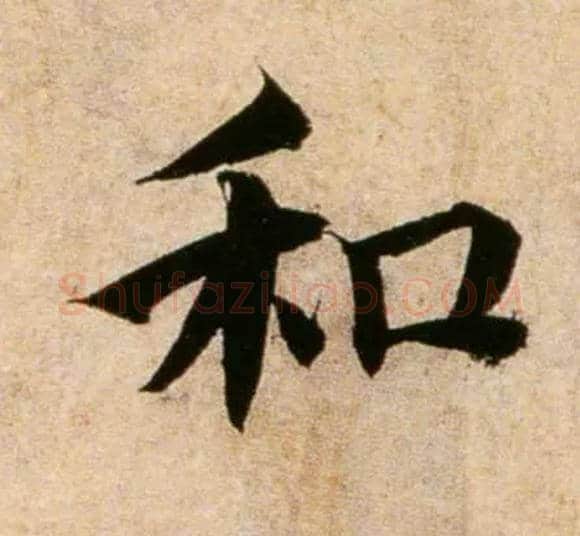 和
Shufaziliao.COM